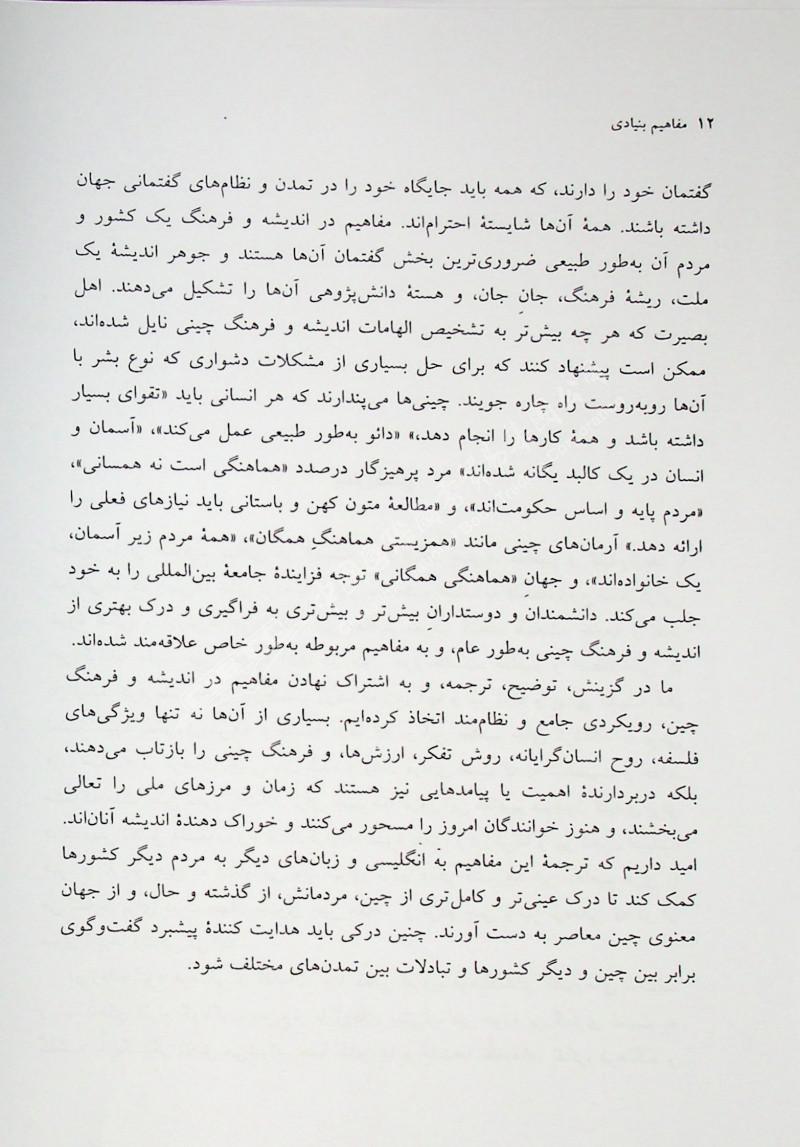 ۱۲ مفاهیم بنیادی
گفتمان خود را دارند، که همه باید جایگاه خود را در تمدن و نظام‌های گفتمانی جهان
داشته باشند. همهٔ آن‌ها شایستهٔ احترام‌اند. مفاهیم در اندیشه و فرهنگ یک کشور و
مردم آن به‌طور طبیعی ضروری‌ترین بخش گفتمان آن‌ها هستند و جوهر اندیشهٔ یک
ملت، ریشهٔ فرهنگ، جانِ جان، و هستهٔ دانش‌پژوهی آن‌ها را تشکیل می‌دهند. اهل
بصیرت که هر چه بیش‌تر به تشخیص الهامات اندیشه و فرهنگ چینی نایل شده‌اند،
ممکن است پیشنهاد کنند که برای حل بسیاری از مشکلات دشواری که نوع بشر با
آن‌ها روبه‌روست راه چاره جویند. چینی‌ها می‌پندارند که هر انسانی باید «تقوای بسیار
داشته باشد و همهٔ کارها را انجام دهد،» «دائو به‌طور طبیعی عمل می‌کند»، «آسمان و
انسان در یک کالبد یگانه شده‌اند» مرد پرهیزگار درصدد «هماهنگی است نه همسانی»،
«مردم پایه و اساس حکومت‌اند»، و «مطالعهٔ متون کهن و باستانی باید نیازهای فعلی را
ارائه دهد.» آرمان‌های چینی مانند «همزیستی هماهنگِ همگان»، «همهٔ مردم زیر آسمان،
یک خانواده‌اند»، و جهانِ «هماهنگی همگانی» توجه فزایندهٔ جامعهٔ بین‌المللی را به خود
جلب می‌کند. دانشمندان و دوستدارانِ بیش‌تر و بیش‌تری به فراگیری و درک بهتری از
اندیشه و فرهنگ چینی به‌طور عام، و به مفاهیم مربوطه به‌طور خاص علاقه‌مند شده‌اند.
ما در گزینش، توضیح، ترجمه، و به اشتراک نهادن مفاهیم در اندیشه و فرهنگ
چین، رویکردی جامع و نظام‌مند اتخاذ کرده‌ایم. بسیاری از آن‌ها نه تنها ویژگی‌های
فلسفه، روح انسان‌گرایانه، روش تفکر، ارزش‌ها، و فرهنگ چینی را بازتاب می‌دهند،
بلکه دربردارندهٔ اهمیت یا پیامدهایی نیز هستند که زمان و مرزهای ملی را تعالی
می‌بخشند، و هنوز خوانندگان امروز را مسحور می‌کنند و خوراک دهندهٔ اندیشه آنان‌اند.
امید داریم که ترجمهٔ این مفاهیم به انگلیسی و زبان‌های دیگر به مردم دیگر کشورها
کمک کند تا درک عینی‌تر و کامل‌تری از چین، مردمانش، از گذشته و حال، و از جهان
معنوی چین معاصر به دست آورند. چنین درکی باید هدایت کنندهٔ پیشبرد گفت‌وگوی
برابر بین چین و دیگر کشورها و تبادلات بین تمدن‌های مختلف شود.